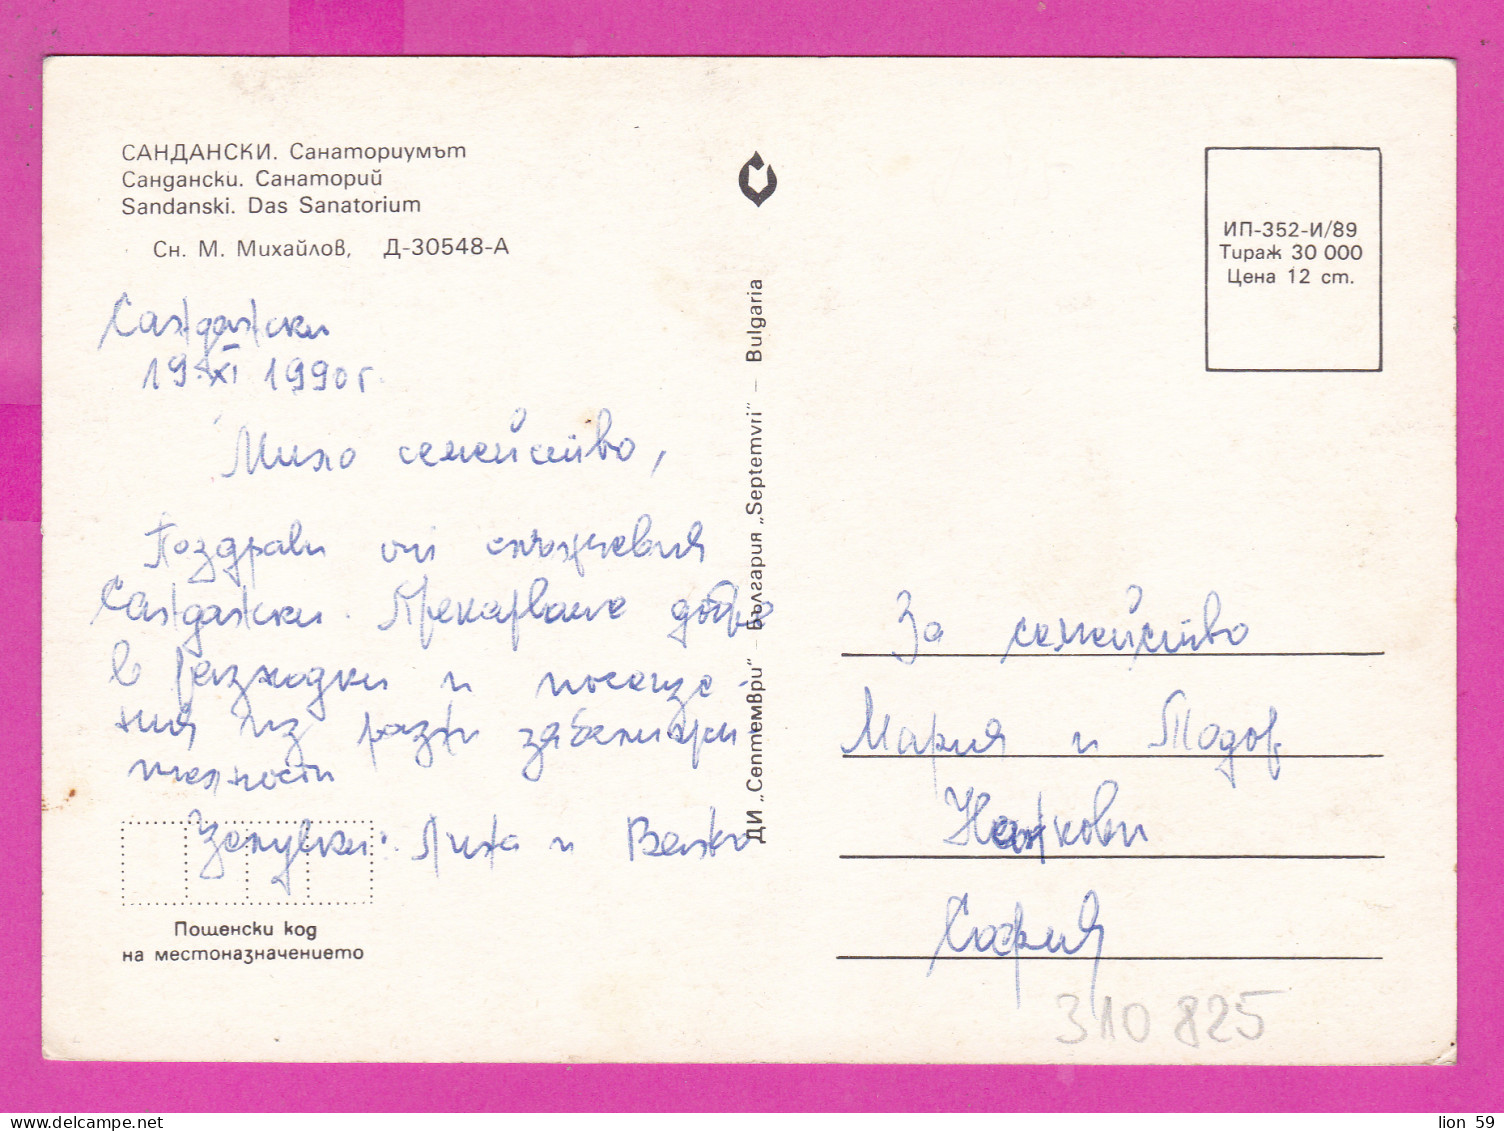 САНДАНСКИ. Санаториумът
Сандански. Санаторий
Sandanski. Das Sanatorium
Сн. М. Михайлов, Д-30548-А
Сандански
19.XI 1990 г.
Мило семейство,
Поздрави от слънчевия
Сандански. Прекарваме добре
в разходки и посеще-
ния из разни забележи-
телности
Целувки: Лиха и Велко
Пощенски код
на местоназначението
ДИ „Септември" – България „Septemvri" – Bulgaria
ИП-352-И/89
Тираж 30 000
Цена 12 ст.
За семейство
Мария и Тодор
Найкови
София
310 825
lion 59